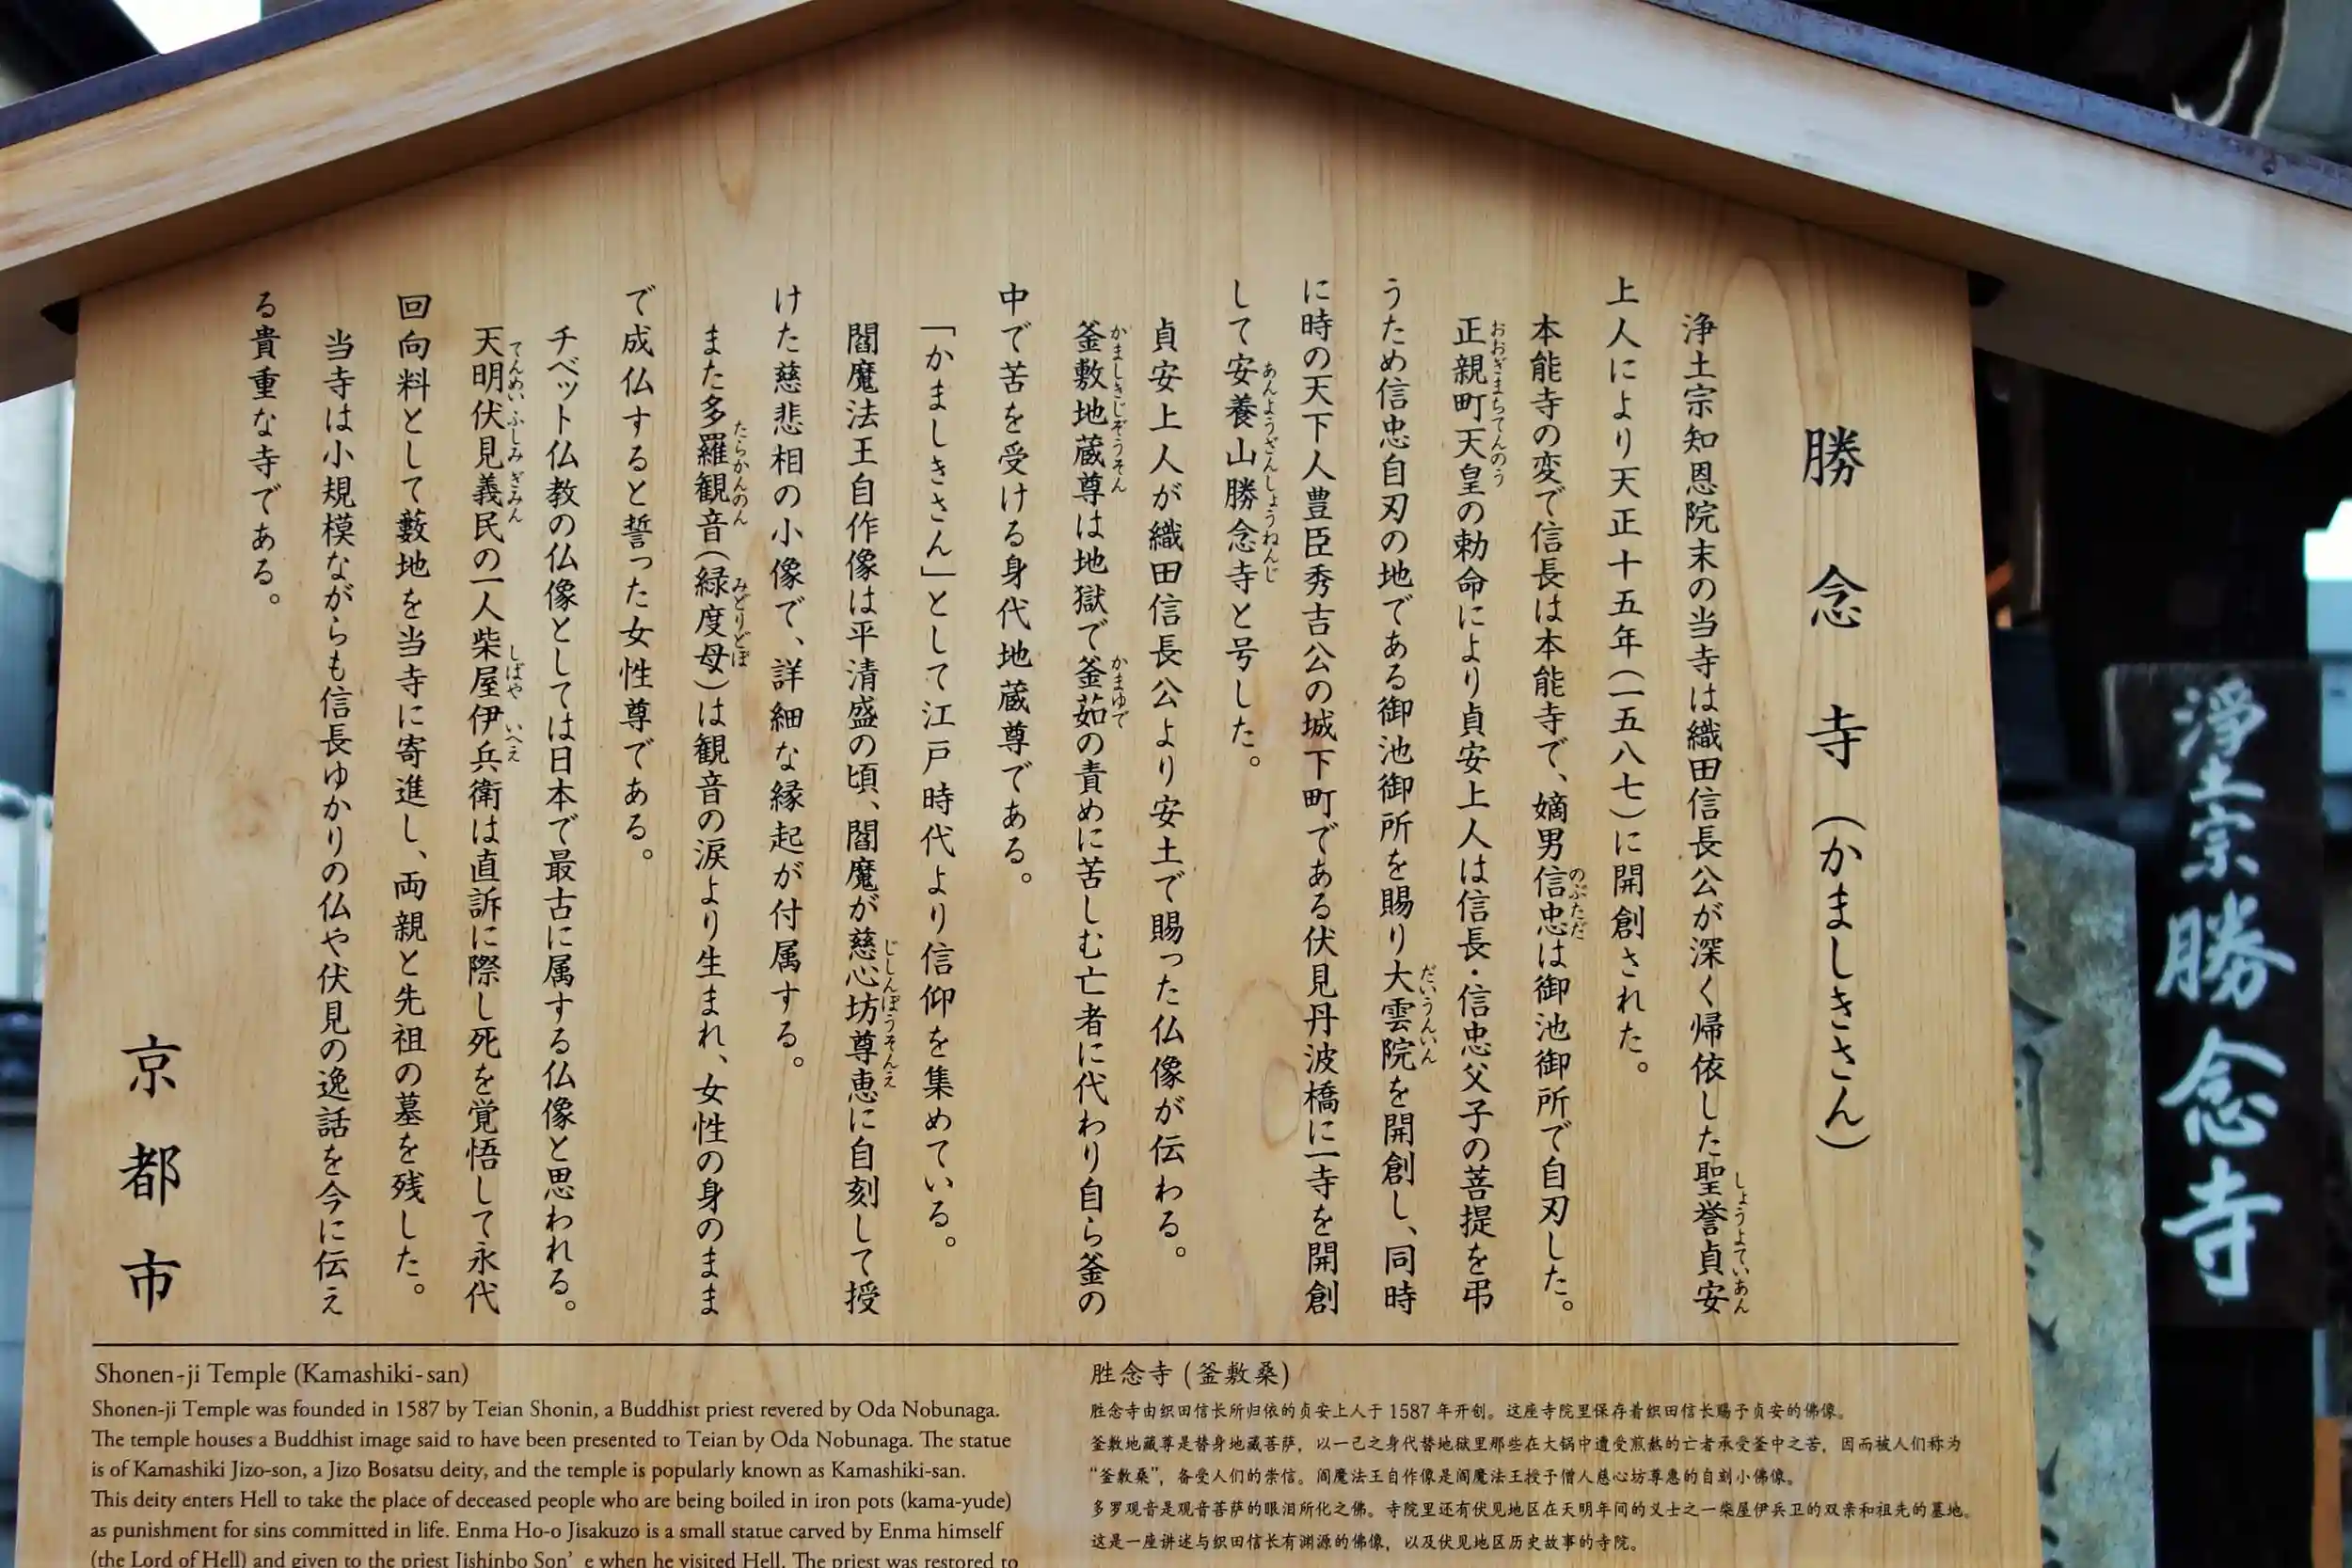 勝念寺（かましきさん）
浄土宗知恩院末の当寺は織田信長公が深く帰依した聖誉貞安
しょうよていあん
上人により天正十五年（一五八七）に開創された。
本能寺の変で信長は本能寺で、嫡男信忠は御池御所で自刃した。
のぶただ
正親町天皇の勅命により貞安上人は信長・信忠父子の菩提を弔
おおぎまちてんのう
うため信忠自刃の地である御池御所を賜り大雲院を開創し、同時
だいうんいん
に時の天下人豊臣秀吉公の城下町である伏見丹波橋に一寺を開創
して安養山勝念寺と号した。
あんようざんしょうねんじ
貞安上人が織田信長公より安土で賜った仏像が伝わる。
釜敷地蔵尊は地獄で釜茹の責めに苦しむ亡者に代わり自ら釜の
かましきじぞうそん かまゆで
中で苦を受ける身代地蔵尊である。
「かましきさん」として江戸時代より信仰を集めている。
閻魔法王自作像は平清盛の頃、閻魔が慈心坊尊恵に自刻して授
じしんぼうそんえ
けた慈悲相の小像で、詳細な縁起が付属する。
また多羅観音（緑度母）は観音の涙より生まれ、女性の身のまま
たらかんのん みどりどぼ
で成仏すると誓った女性尊である。
チベット仏教の仏像としては日本で最古に属する仏像と思われる。
天明伏見義民の一人柴屋伊兵衛は直訴に際し死を覚悟して永代
てんめい ふしみ ぎみん しばや いへえ
回向料として藪地を当寺に寄進し、両親と先祖の墓を残した。
当寺は小規模ながらも信長ゆかりの仏や伏見の逸話を今に伝え
る貴重な寺である。
京都市
Shonen-ji Temple (Kamashiki-san)
Shonen-ji Temple was founded in 1587 by Teian Shonin, a Buddhist priest revered by Oda Nobunaga.
The temple houses a Buddhist image said to have been presented to Teian by Oda Nobunaga. The statue
is of Kamashiki Jizo-son, a Jizo Bosatsu deity, and the temple is popularly known as Kamashiki-san.
This deity enters Hell to take the place of deceased people who are being boiled in iron pots (kama-yude)
as punishment for sins committed in life. Enma Ho-o Jisakuzo is a small statue carved by Enma himself
(the Lord of Hell) and given to the priest Jishinbo Son’e when he visited Hell. The priest was restored to
胜念寺 (釜敷桑)
胜念寺由织田信长所归依的贞安上人于 1587 年开创。这座寺院里保存着织田信长赐予贞安的佛像。
釜敷地藏尊是替身地藏菩萨，以一己之身代替地狱里那些在大锅中遭受煎熬的亡者承受釜中之苦，因而被人们称为
“釜敷桑”，备受人们的崇信。阎魔法王自作像是阎魔法王授予僧人慈心坊尊惠的自刻小佛像。
多罗观音是观音菩萨的眼泪所化之佛。寺院里还有伏见地区在天明年间的义士之一柴屋伊兵卫的双亲和祖先的墓地。
这是一座讲述与织田信长有渊源的佛像，以及伏见地区历史故事的寺院。
淨土宗勝念寺